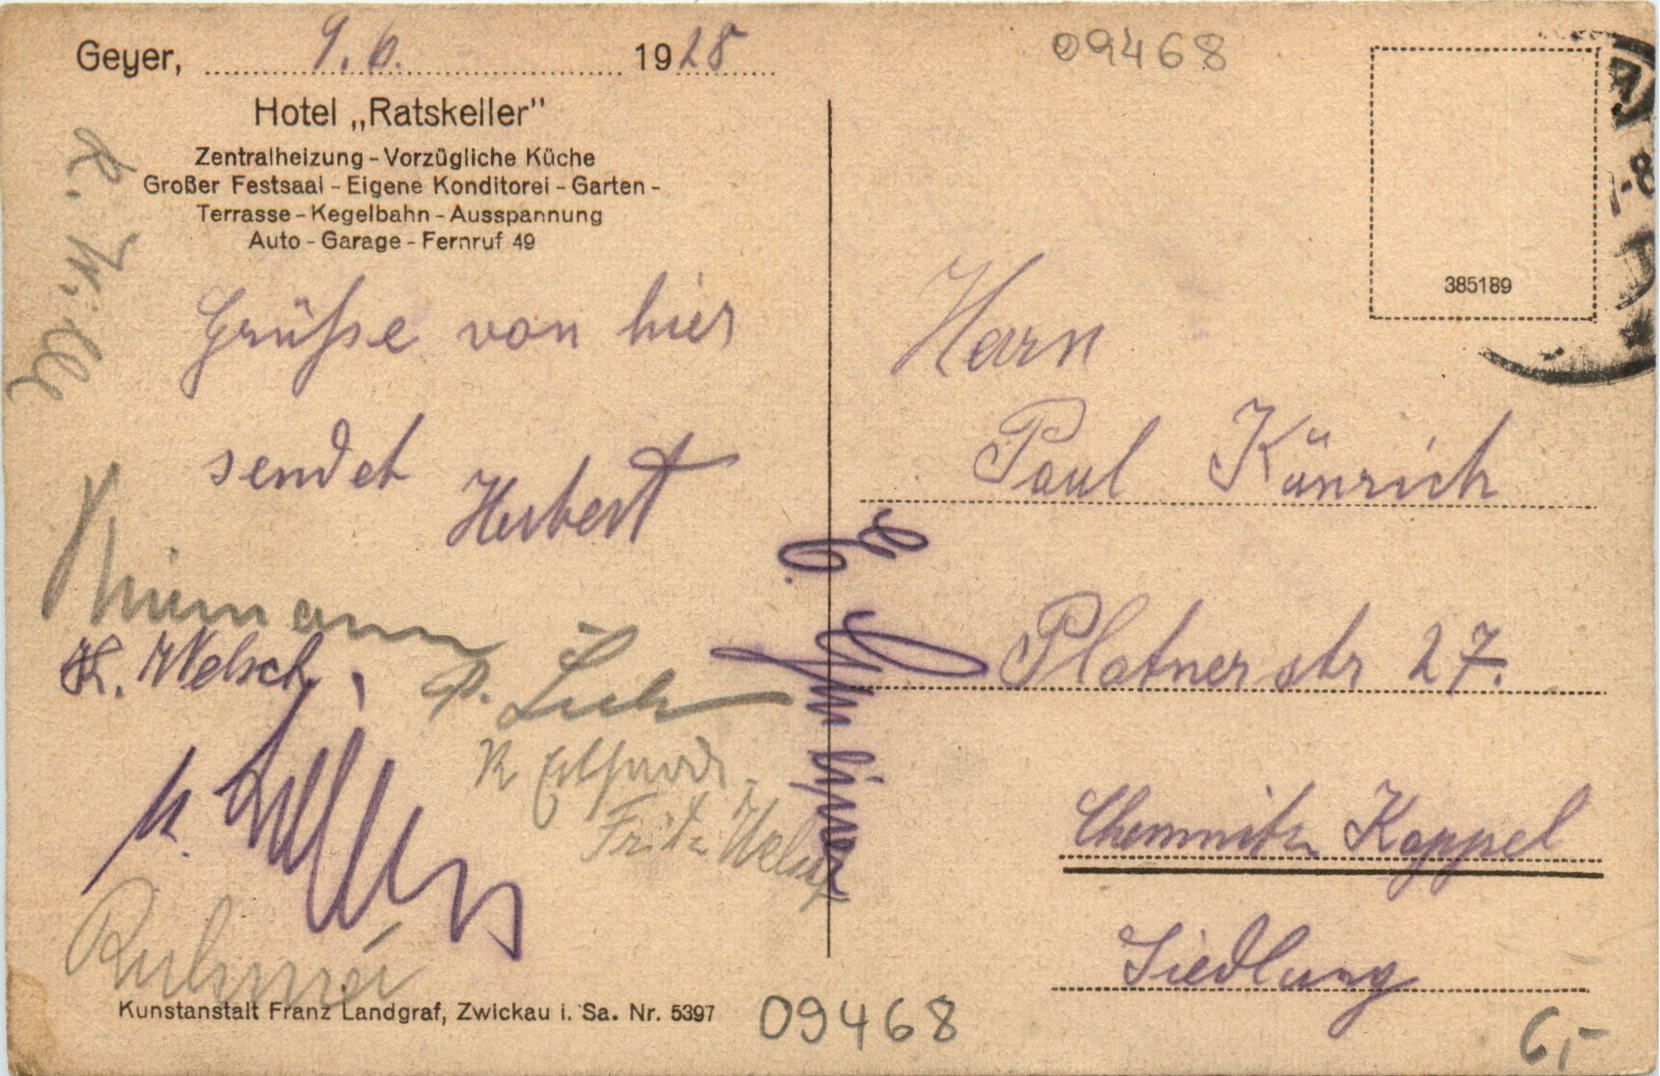 Geyer, 9.6. 1928
Hotel „Ratskeller"
Zentralheizung - Vorzügliche Küche
Großer Festsaal - Eigene Konditorei - Garten -
Terrasse - Kegelbahn - Ausspannung
Auto - Garage - Fernruf 49
Grüße von hier
sendet Herbert
K. Welsch
Fritz
Kunstanstalt Franz Landgraf, Zwickau i. Sa. Nr. 5397
09468
385189
Herrn
Paul
Platnerstr 27.
Chemnitz Kappel
Siedlung
09468
6,-